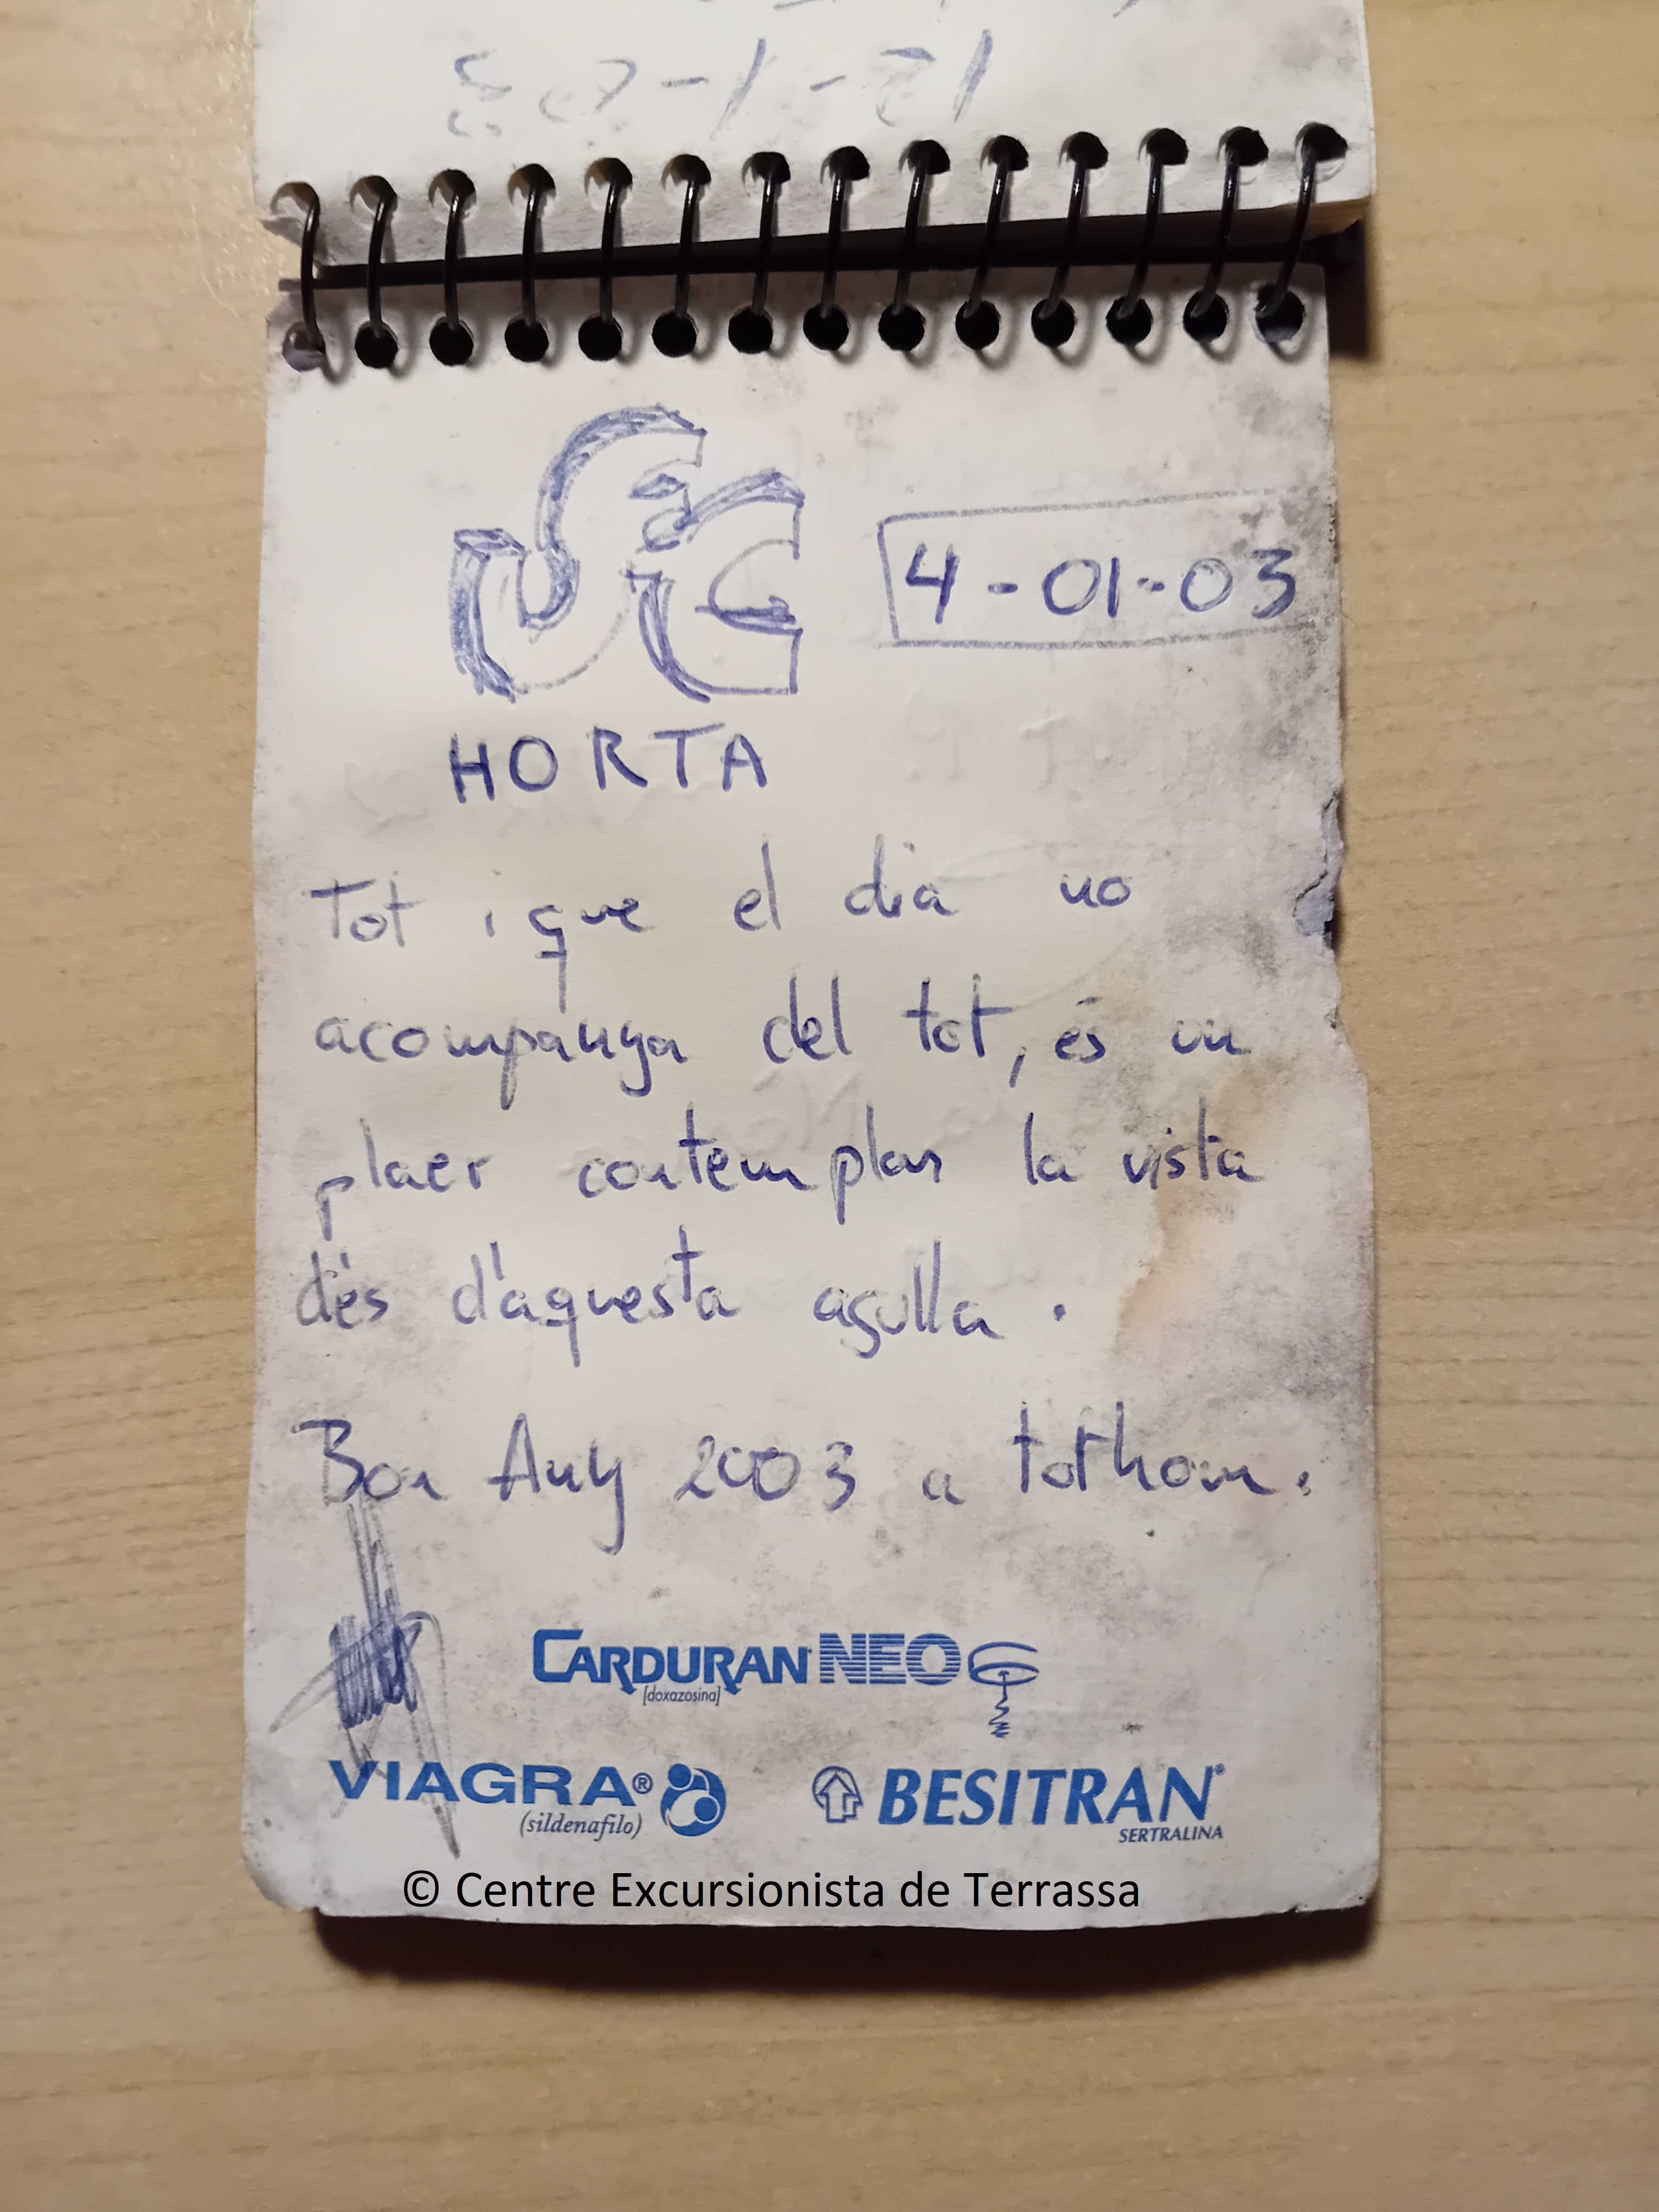 4-01-03
HORTA
Tot i que el dia no
acompanya del tot, és un
plaer contemplar la vista
dés d'aquesta agulla.
Bon Any 2003 a tothom.
CARDURAN NEO
[doxazosina]
VIAGRA®
(sildenafilo)
BESITRAN®
SERTRALINA
© Centre Excursionista de Terrassa